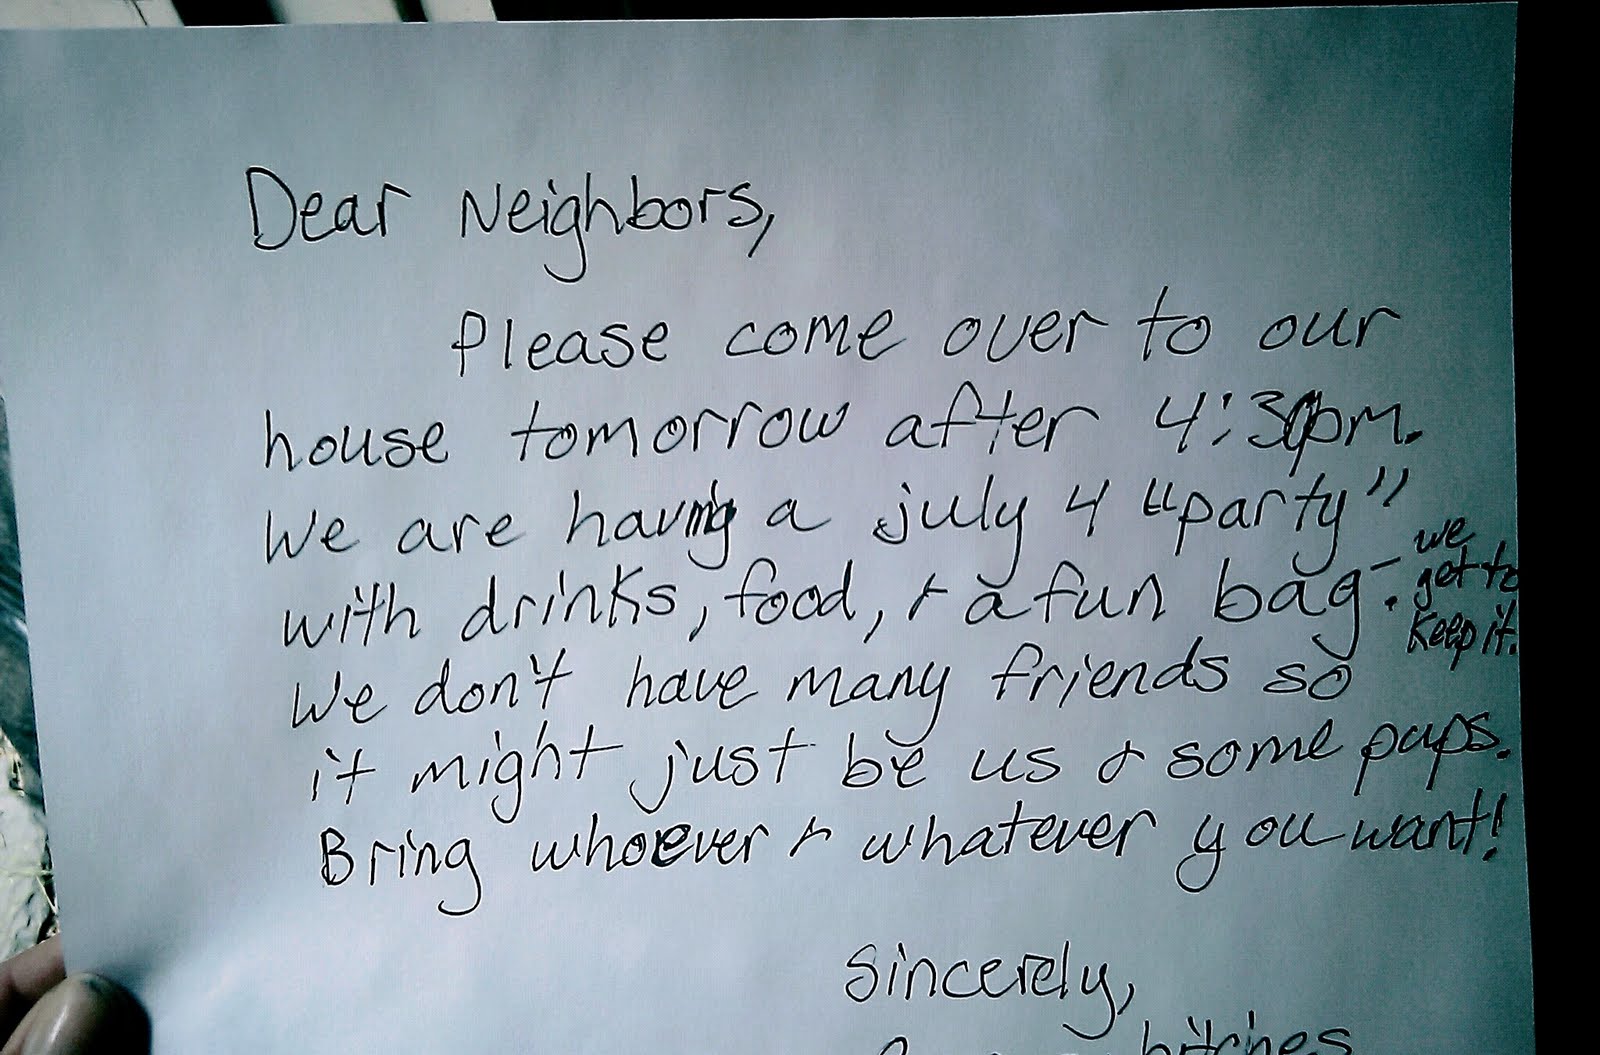 Dear Neighbors,
Please come over to our
house tomorrow after 4:30pm.
We are having a july 4 "party"
with drinks, food, + a fun bag - we get to keep it.
We don't have many friends so
it might just be us & some pups.
Bring whoever + whatever you want!
Sincerely,
bitches